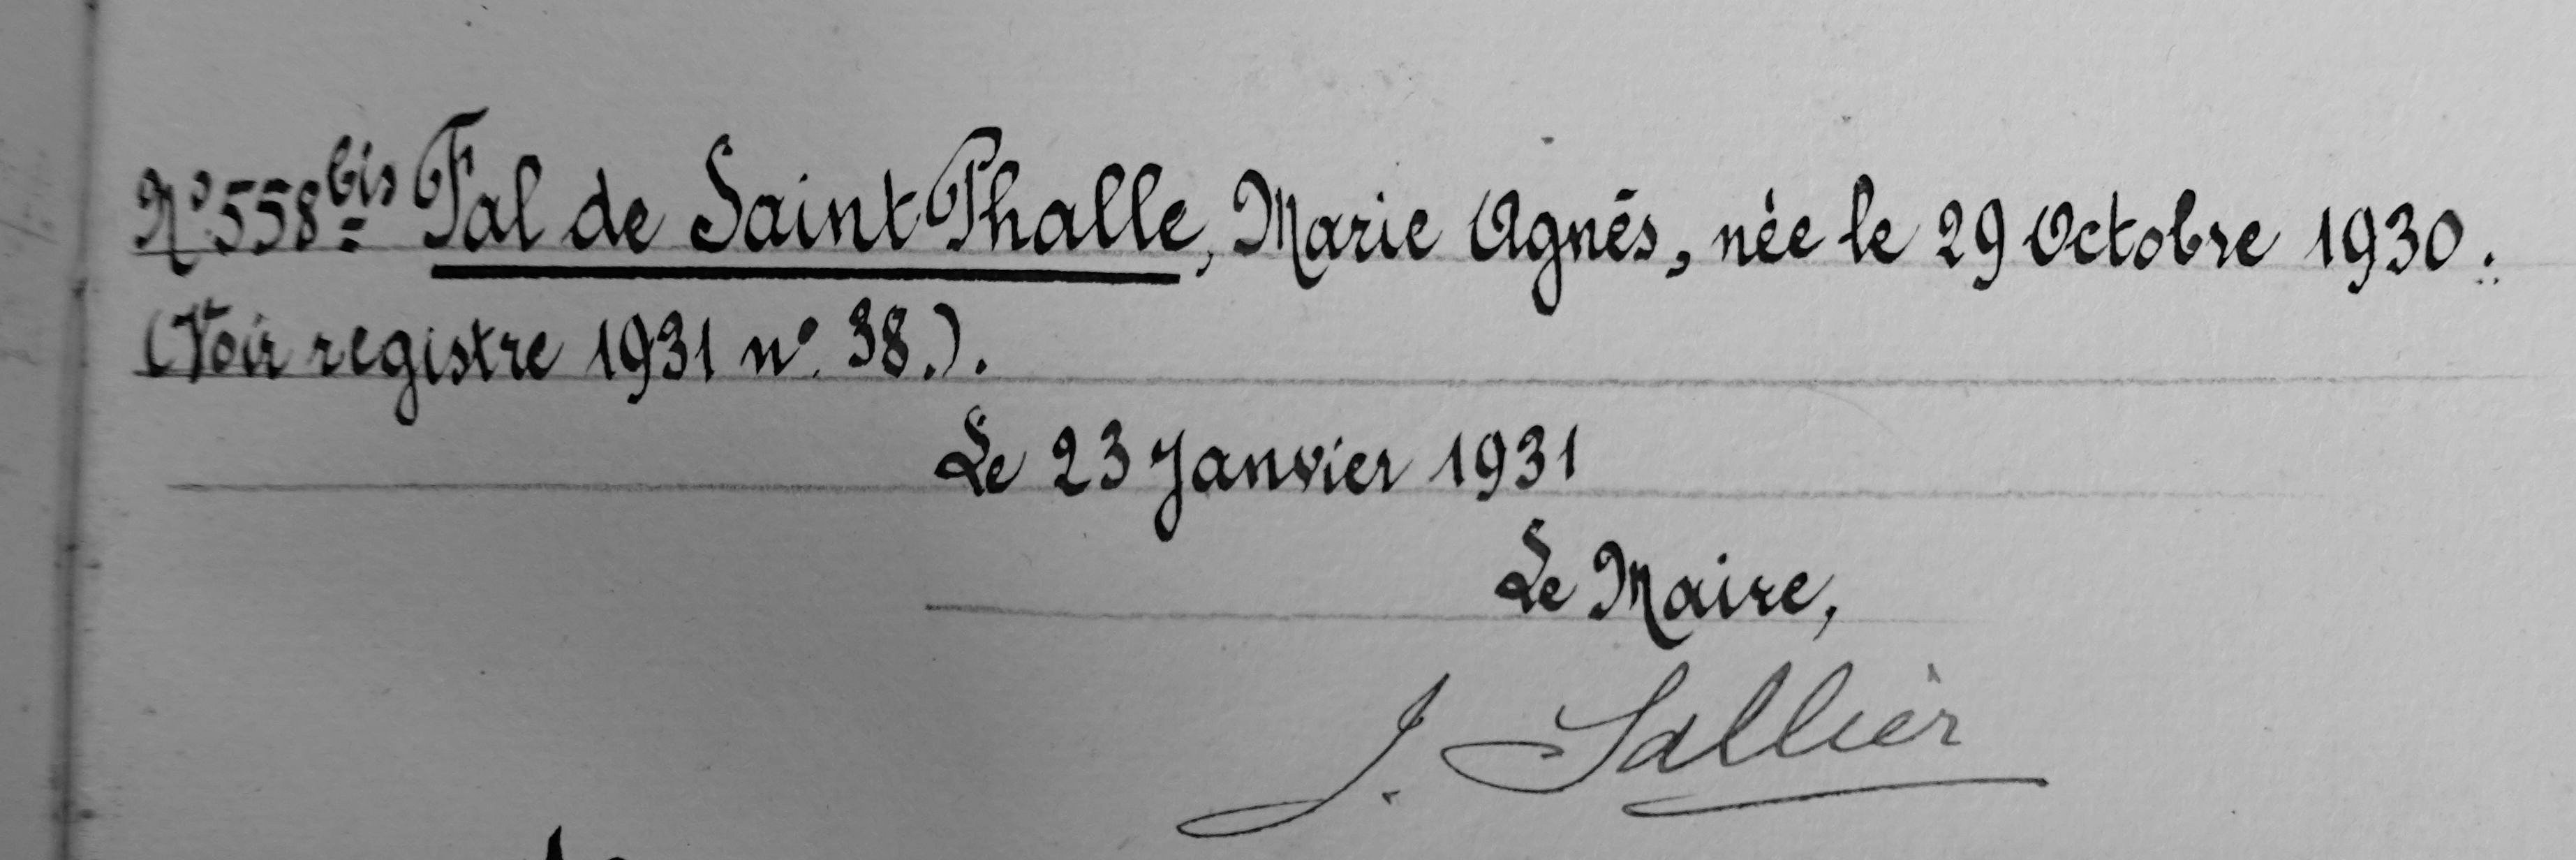 N° 558 bis Fal de Saint Phalle, Marie Agnès, née le 29 Octobre 1930.
(Voir registre 1931 n° 38.).
Le 23 Janvier 1931
Le Maire,
J. Sallier